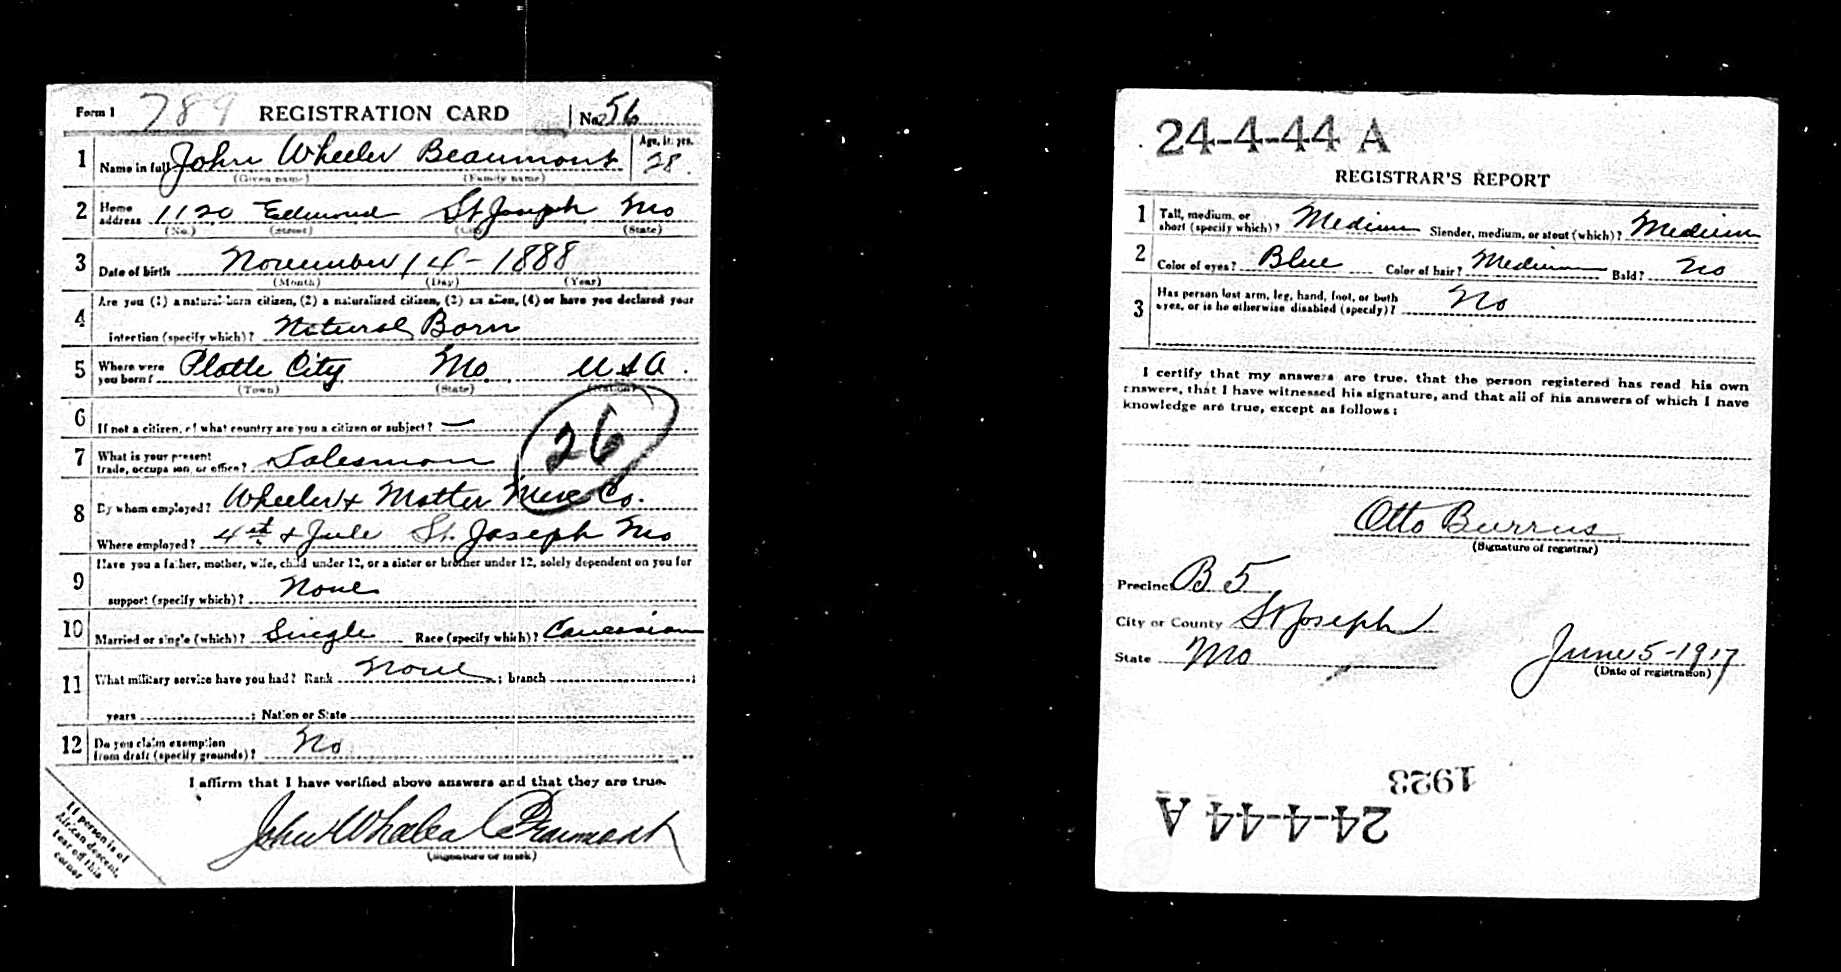 Form 1 789 REGISTRATION CARD No. 56
1 Name in full John Wheeler Beaumont Age, in yrs. 28
(Given name) (Family name)
2 Home address 1120 Edmond St. Joseph Mo
(No.) (Street) (City) (State)
3 Date of birth November 14 - 1888
(Month) (Day) (Year)
4 Are you (1) a natural-born citizen, (2) a naturalized citizen, (3) an alien, (4) or have you declared your
intention (specify which)? Natural Born
5 Where were you born? Platte City Mo USA
(Town) (State) (Nation)
6 If not a citizen, of what country are you a citizen or subject? —
26
7 What is your present trade, occupation, or office? Salesman
8 By whom employed? Wheeler & Motter Merc Co.
Where employed? 4th & Jule St. Joseph Mo
9 Have you a father, mother, wife, child under 12, or a sister or brother under 12, solely dependent on you for
support (specify which)? None
10 Married or single (which)? Single Race (specify which)? Caucasian
11 What military service have you had? Rank None ; branch ;
years ; Nation or State
12 Do you claim exemption from draft (specify grounds)? No
I affirm that I have verified above answers and that they are true.
John Wheeler Beaumont
(Signature or mark)
If person is of
African descent,
tear off this
corner
24-4-44 A
REGISTRAR'S REPORT
1 Tall, medium, or short (specify which)? Medium Slender, medium, or stout (which)? Medium
2 Color of eyes? Blue Color of hair? Medium Bald? No
3 Has person lost arm, leg, hand, foot, or both
eyes, or is he otherwise disabled (specify)? No
I certify that my answers are true, that the person registered has read his own
answers, that I have witnessed his signature, and that all of his answers of which I have
knowledge are true, except as follows:
Otto Burrus
(Signature of registrar)
Precinct B 5
City or County St Joseph
State Mo
June 5 - 1917
(Date of registration)
1923
24-4-44 A